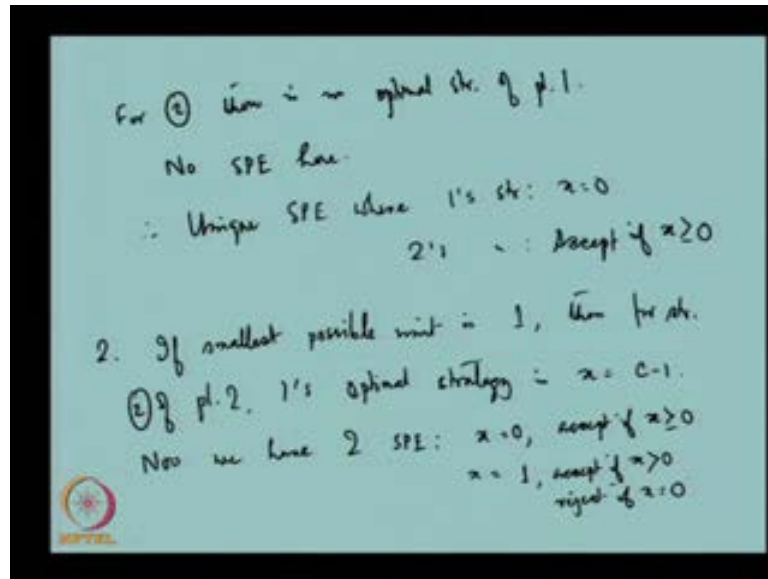 For ② there is no optimal str. of pl. 1.
No SPE here.
∴ Unique SPE where 1's str: x=0
2's " : Accept if x≥0
2. If smallest possible unit is 1, then for str.
② of pl. 2, 1's optimal strategy is x = C-1.
Now we have 2 SPE: x=0, accept if x≥0
x = 1, accept if x>0
reject if x=0
NPTEL